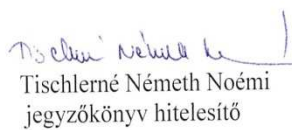 Tischlerné Németh Noémi
jegyzőkönyv hitelesítő